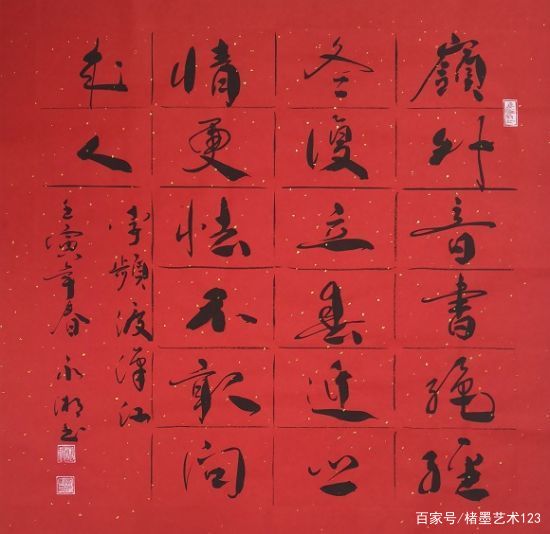 嶺外音書絕經
冬復立春近鄉
情更怯不敢問
來人
李頻渡漢江
壬寅年春永湘书
百家号/楮墨艺术123